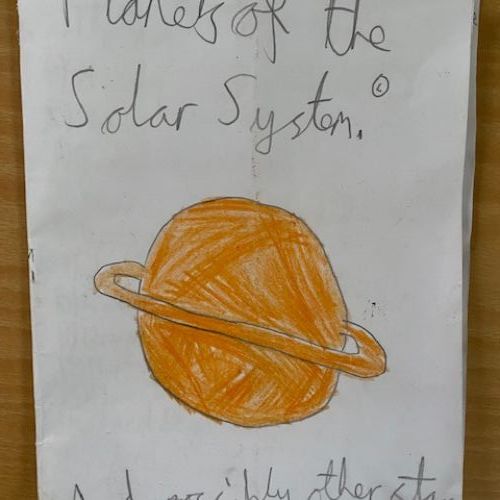 Planets of the
Solar System. ©
And possibly other st